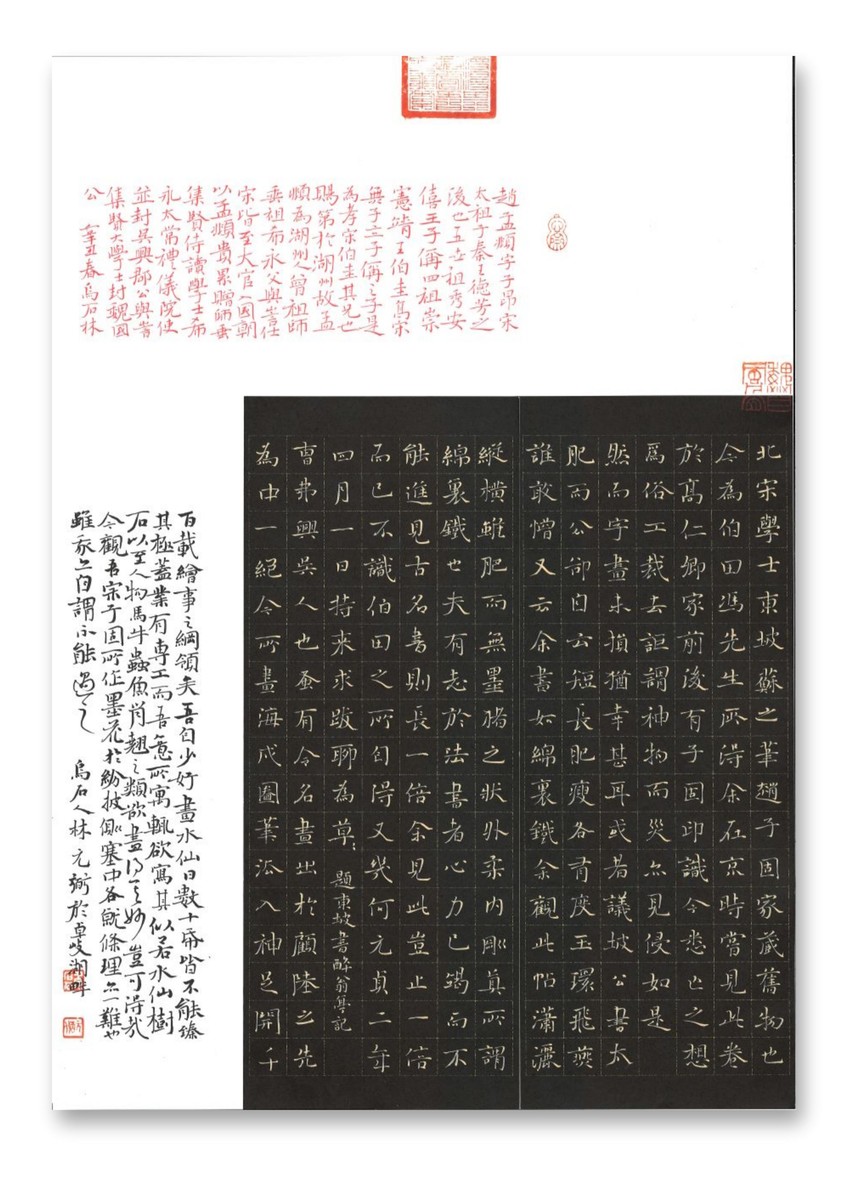 趙孟頫字子昂宋
太祖子秦王德芳之
後也五世祖秀安
僖王子偁四祖崇
憲靖王伯圭高宗
無子立子偁之子是
為孝宗伯圭其兄也
賜第於湖州故孟
頫為湖州人曾祖師
垂祖希永父與訔仕
宋皆至大官入國朝
以孟頫貴累贈師垂
集賢侍讀學士希
永太常禮儀院使
並封吳興郡公與訔
集賢大學士封魏國
公 辛丑春烏石林
北宋學士東坡蘇之筆趙子固家藏舊物也
今為伯田馮先生所得余在京時嘗見此卷
於高仁卿家前後有子固印識今悉亡之想
為俗工裁去詎謂神物而災亦見侵如是
然而字畫未損猶幸甚耳或者議坡公書太
肥而公卻自云短長肥瘦各有度玉環飛燕
誰敢憎又云余書如綿裹鐵余觀此帖瀟灑
縱橫雖肥而無墨豬之狀外柔內剛真所謂
綿裹鐵也夫有志於法書者心力已竭而不
能進見古名書則長一倍余見此豈止一倍
而已不識伯田之所自得又幾何元貞二年
四月一日持來求跋聊為草〻 題東坡書醉翁亭記
曹弗興吳人也蚤有令名畫出於顧陸之先
為中一絕令所畫海戍圖筆法入神足開千
百載繪事之綱領矣吾自少好畫水仙日數十紙皆不能臻
其極蓋業有專工而吾意所寓輒欲寫其似若水仙樹
石以至人物馬牛蟲魚肖翹之類欲盡得其妙豈可得哉
今觀吾宗子固所作墨花於紛披側塞中各就條理亦一難也
雖我亦自謂不能過之 烏石人林元弼於卓岐湖畔